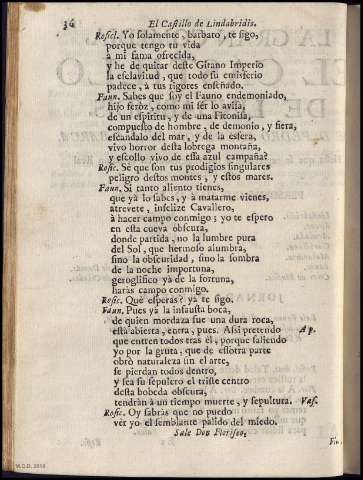 36 El Castillo de Lindabridis.
Rosicl. Yo solamente, barbaro, te sigo,
porque tengo tu vida
à mi fama ofrecida,
y he de quitar deste Gitano Imperio
la esclavitud, que todo su emisferio
padece, à tus rigores enseñado.
Faun. Sabes que soy el Fauno endemoniado,
hijo feròz, como mi sér lo avisa,
de un espiritu, y de una Fitonisa,
compuesto de hombre, de demonio, y fiera,
escandalo del mar, y de la esfera,
vivo horror desta lobrega montaña,
y escollo vivo de essa azul campaña?
Rosic. Sè que son tus prodigios singulares
peligro destos montes, y estos mares.
Faun. Si tanto aliento tienes,
que yà lo sabes, y à matarme vienes,
atrevete, infelize Cavallero,
à hacer campo conmigo; yo te espero
en esta cueva obscura,
donde partida, no la lumbre pura
del Sol, que hermoso alumbra,
sino la obscuridad, sino la sombra
de la noche importuna,
geroglifico yà de la fortuna,
haràs campo conmigo.
Rosic. Què esperas? ya te sigo.
Faun. Pues yà la infausta boca,
de quien mordaza fue una dura roca,
està abierta, entra, pues. Assi pretendo Ap.
que entren todos tras èl, porque saliendo
yo por la gruta, que de estotra parte
obrò naturaleza sin el arte,
se pierdan todos dentro,
y sea su sepulcro el triste centro
desta bobeda obscura,
tendràn à un tiempo muerte, y sepultura. Vas.
Rosic. Oy sabràs que no puedo
ver yo el semblante palido del miedo.
Sale Don Floriseo.